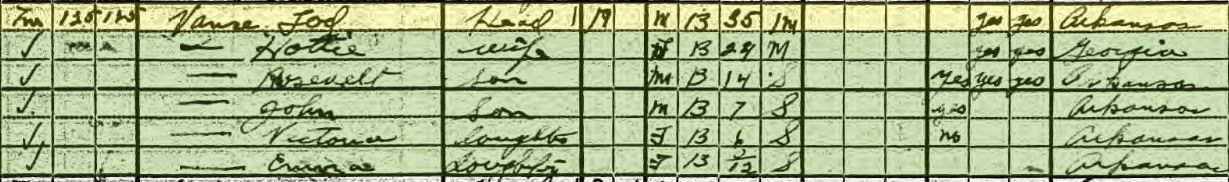 Fm 125 125 Vance, Tod Head 1 M B 35 M yes yes Arkansas
— Hattie wife F B 24 M yes yes Georgia
— Rosevelt son M B 14 S yes yes yes Arkansas
— John Son M B 7 S yes Arkansas
— Victoria F B 6 S no Arkansas
— F B /12 S Arkansas